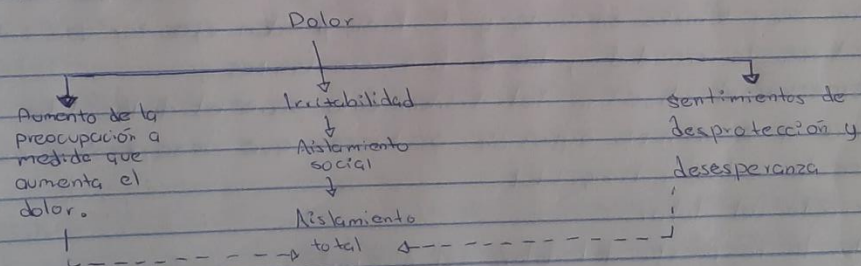 Dolor
Aumento de la
preocupación a
medida que
aumenta el
dolor.
Irritabilidad
Aislamiento
social
Aislamiento
total
sentimientos de
desprotección y
desesperanza